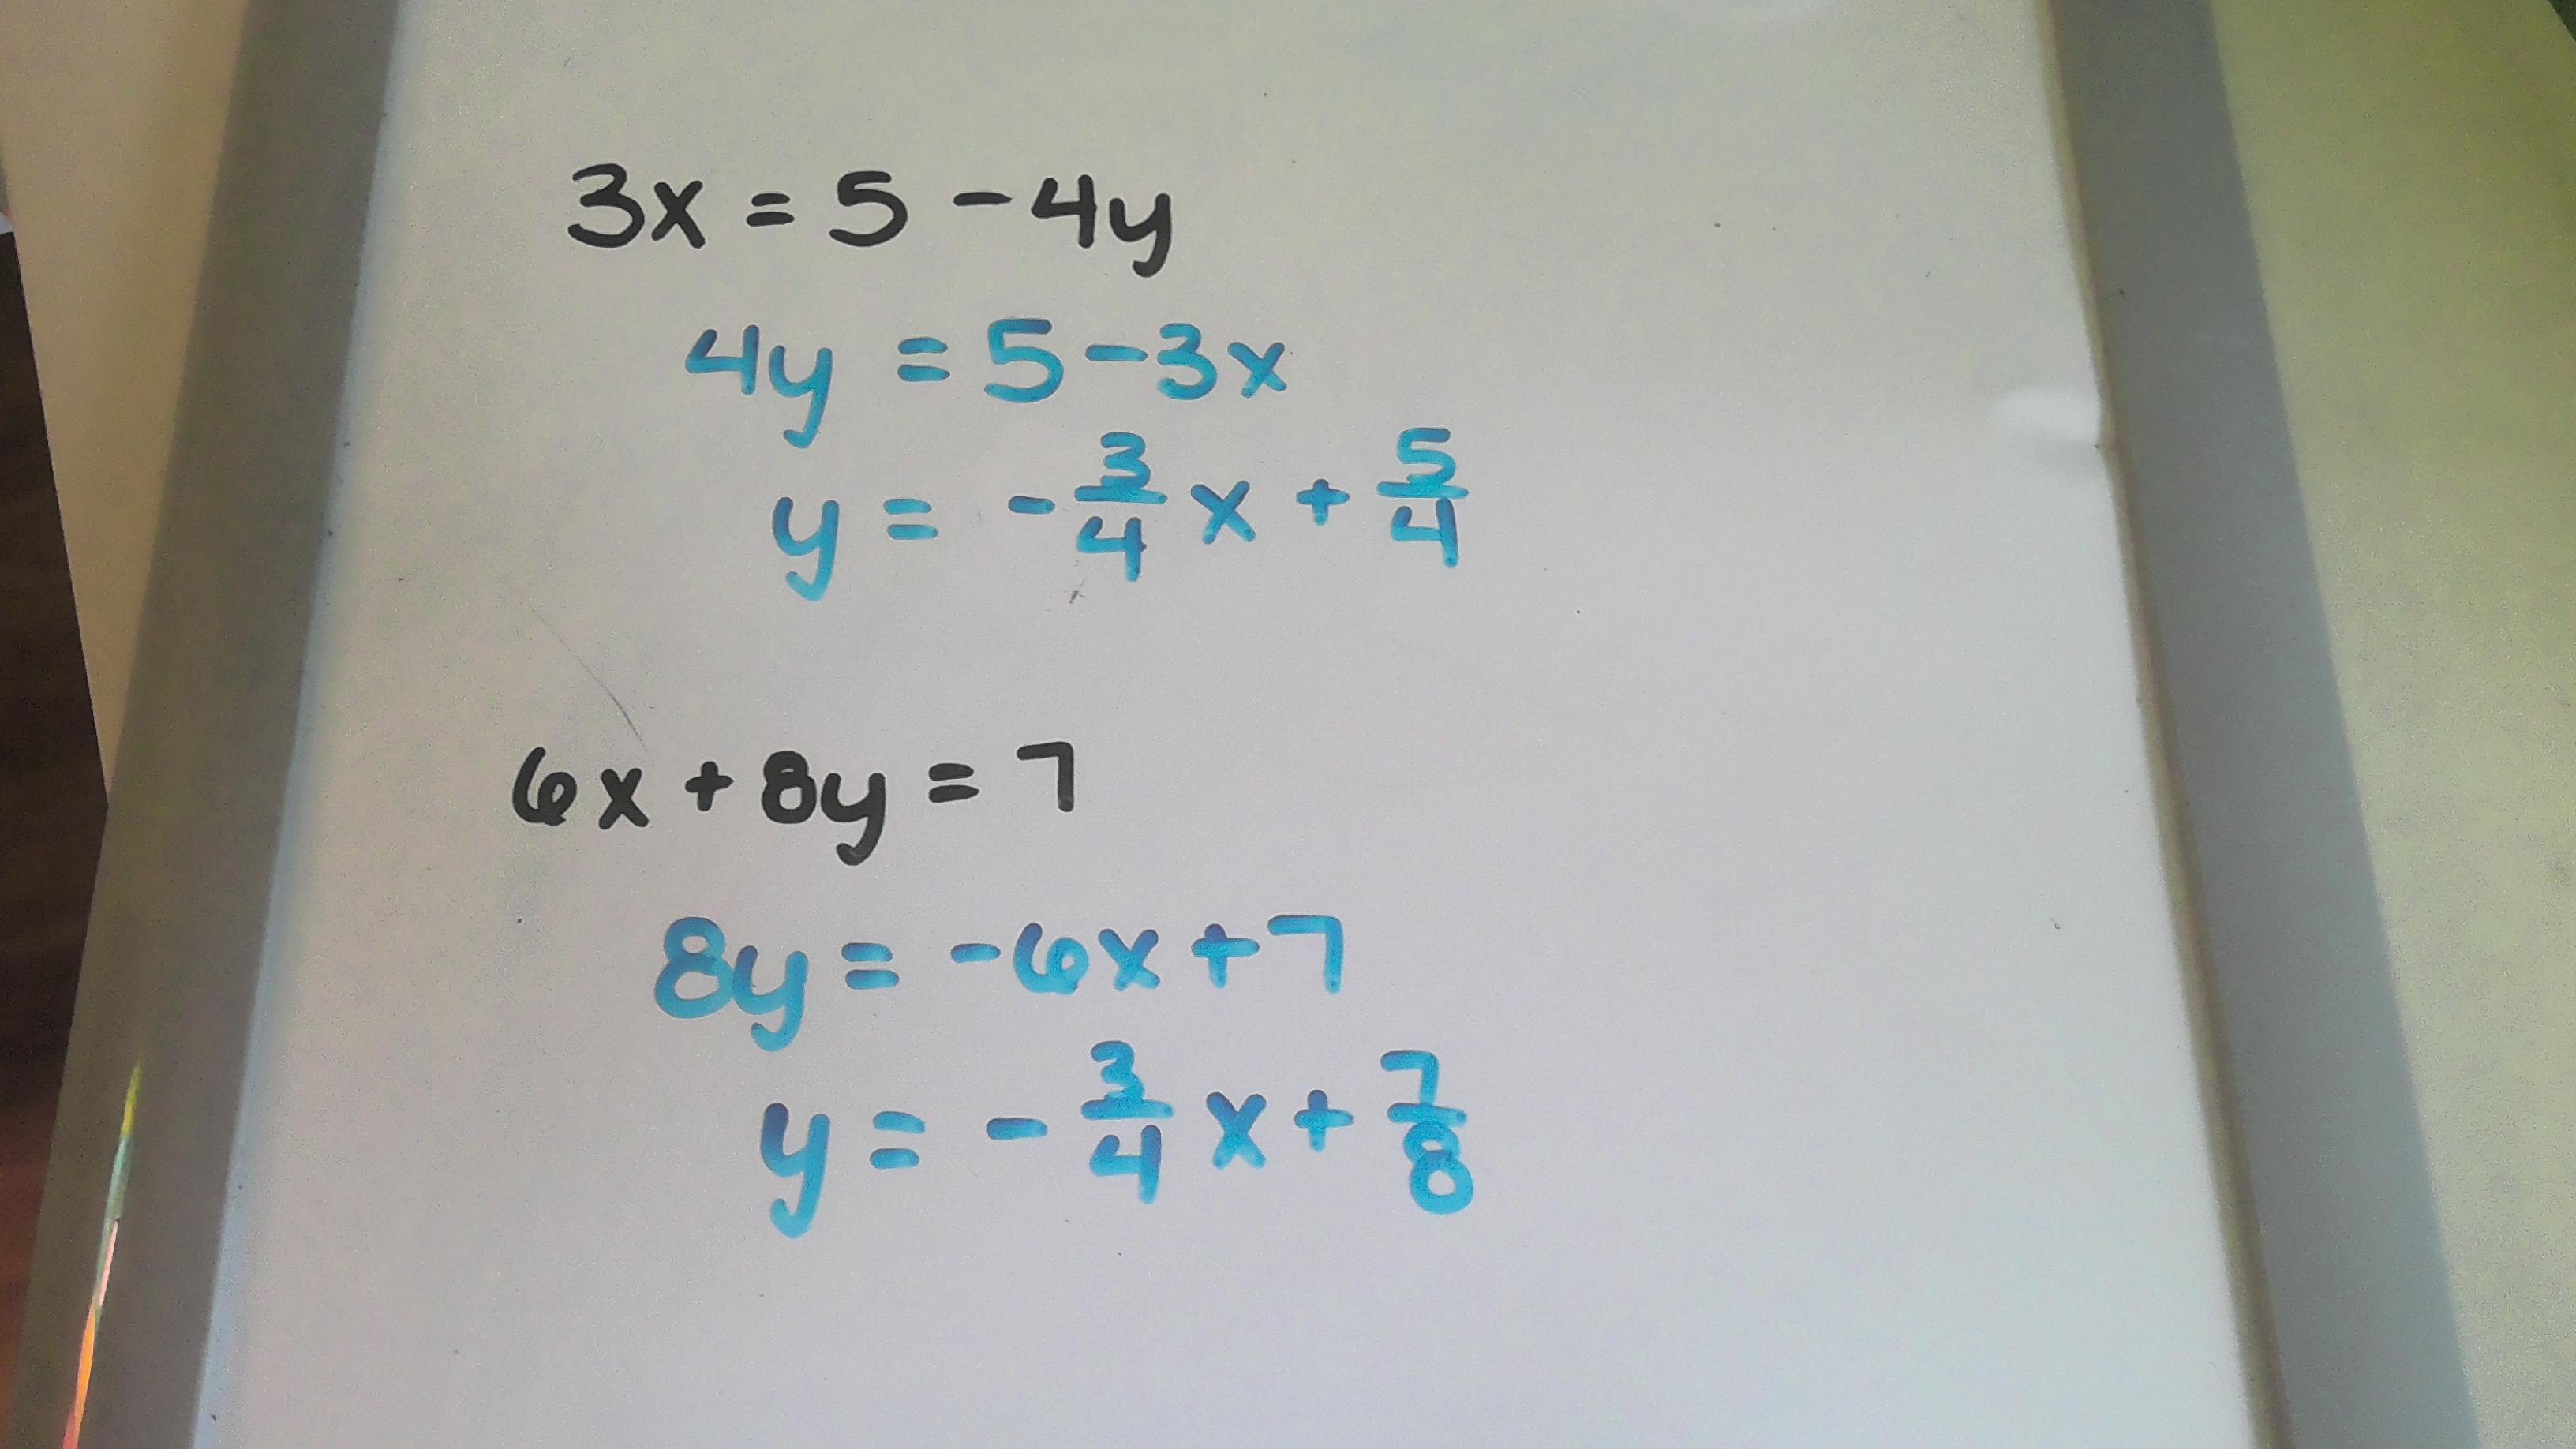 3x = 5 - 4y
4y = 5 - 3x
y = - 3/4 x + 5/4
6x + 8y = 7
8y = -6x + 7
y = - 3/4 x + 7/8